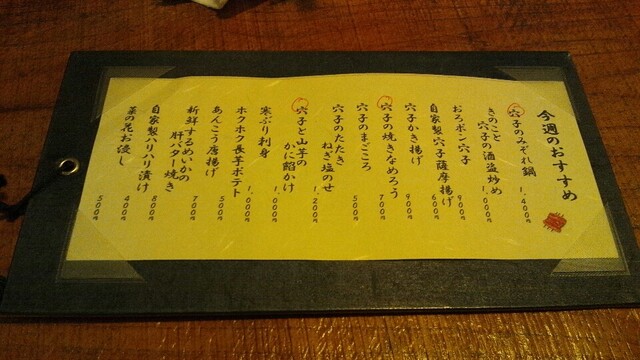 今週のおすすめ
穴子のみぞれ鍋 1,400円
きのこと
穴子の酒盗炒め 1,000円
おろポン穴子 900円
自家製穴子薩摩揚げ 600円
穴子かき揚げ 900円
穴子の焼きなめろう 700円
穴子のまごころ 500円
穴子のたたき
ねぎ塩のせ 1,200円
穴子と山芋の
かに餡かけ 1,000円
寒ぶり刺身 1,000円
ホクホク長芋ポテト 500円
あんこう唐揚げ 700円
新鮮するめいかの
肝バター焼き 800円
自家製ハリハリ漬け 400円
菜の花お浸し 500円